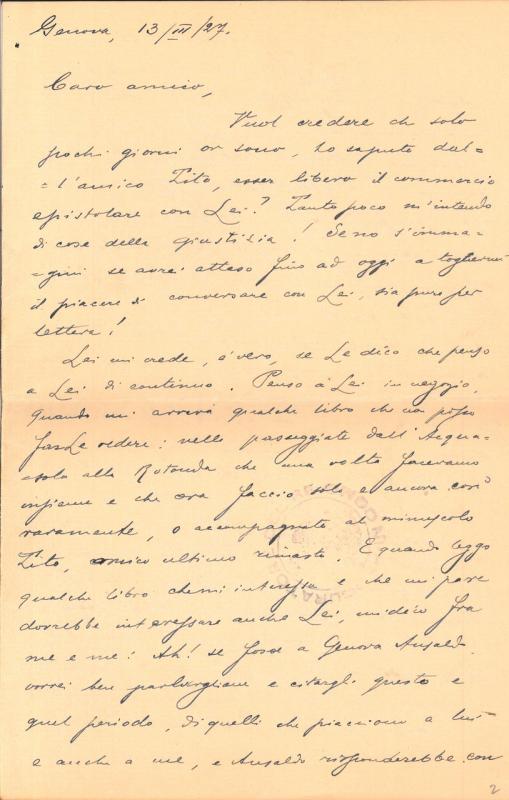 Genova, 13/III/27.
Caro amico,
Vuol credere ch solo
pochi giorni or sono, ho saputo dal=
=l'amico Zito, esser libero il commercio
epistolare con Lei? Tanto poco m'intendo
di cose della giustizia! Se no s'imma=
=gini se avrei atteso fino ad oggi a togliermi
il piacere di conversare con Lei, sia pure per
lettera!
Lei mi crede, è vero, se Le dico che penso
a Lei di continuo. Penso a Lei in negozio,
quando mi arriva qualche libro che non posso
farLe vedere: nelle passeggiate dall'Acqua=
sola alla Rotonda che una volta facevamo
insieme e che ora faccio solo e ancora così
raramente, o accompagnato al minuscolo
Zito, amico ultimo rimasto. E quando leggo
qualche libro che mi interessa e che mi pare
dovrebbe interessare anche Lei, mi dico fra
me e me: Ah! se fosse a Genova Ansaldo
vorrei ben parlargliene e citargli questo e
quel periodo, di quelli che piacciono a lui
e anche a me, e Ansaldo risponderebbe con
2